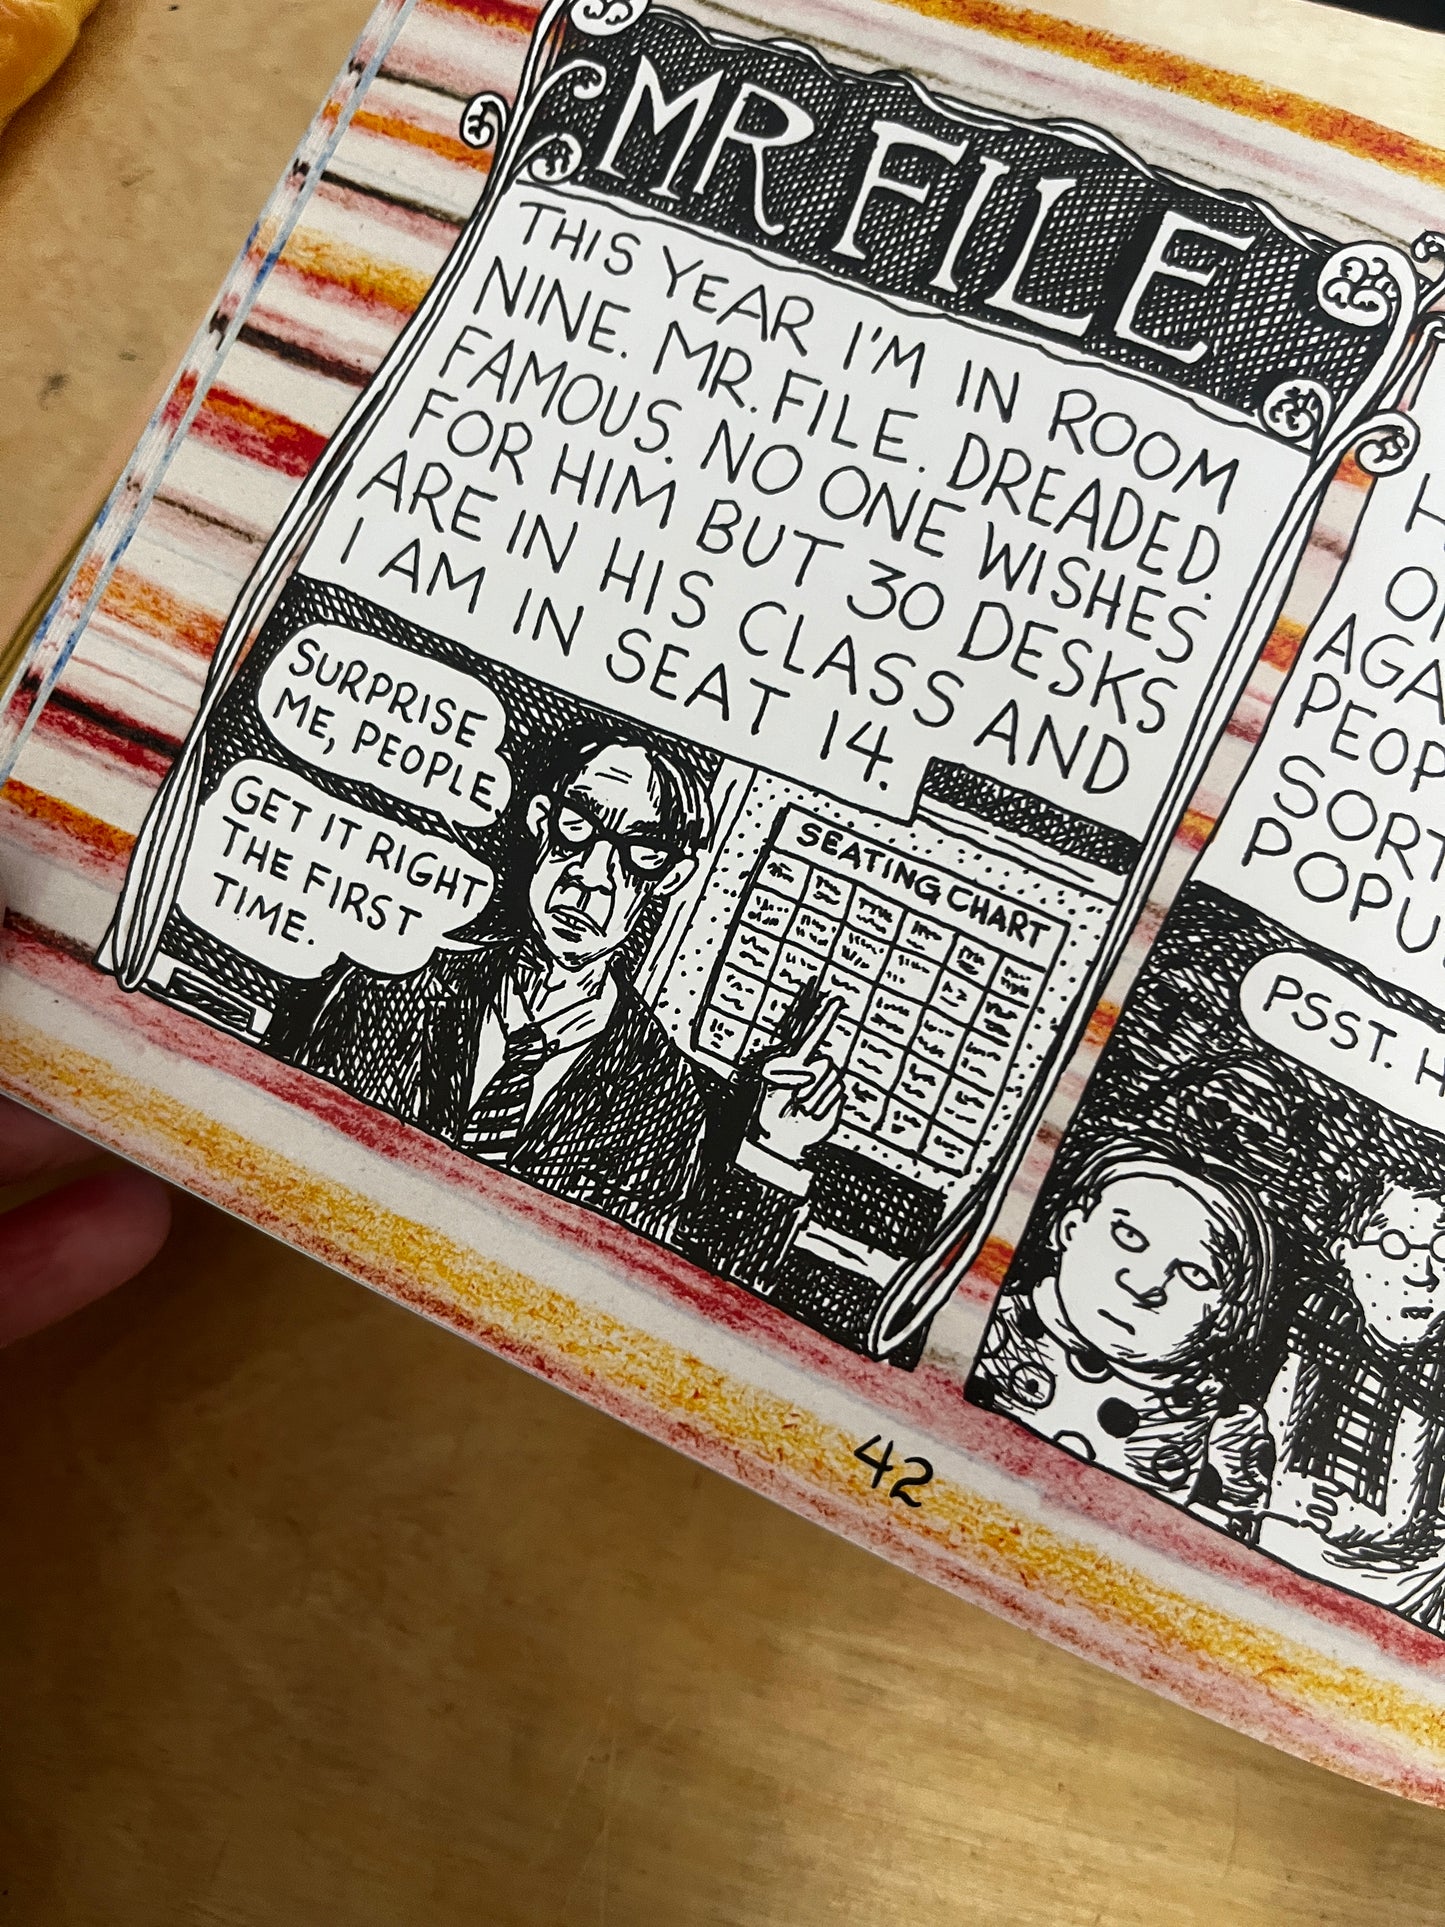 MR FILE
THIS YEAR I'M IN ROOM
NINE. MR. FILE. DREADED.
FAMOUS. NO ONE WISHES
FOR HIM BUT 30 DESKS
ARE IN HIS CLASS AND
I AM IN SEAT 14.
SURPRISE
ME, PEOPLE.
GET IT RIGHT
THE FIRST
TIME.
SEATING CHART
AGA
PEOP
SORT
POPU
PSST. H
42